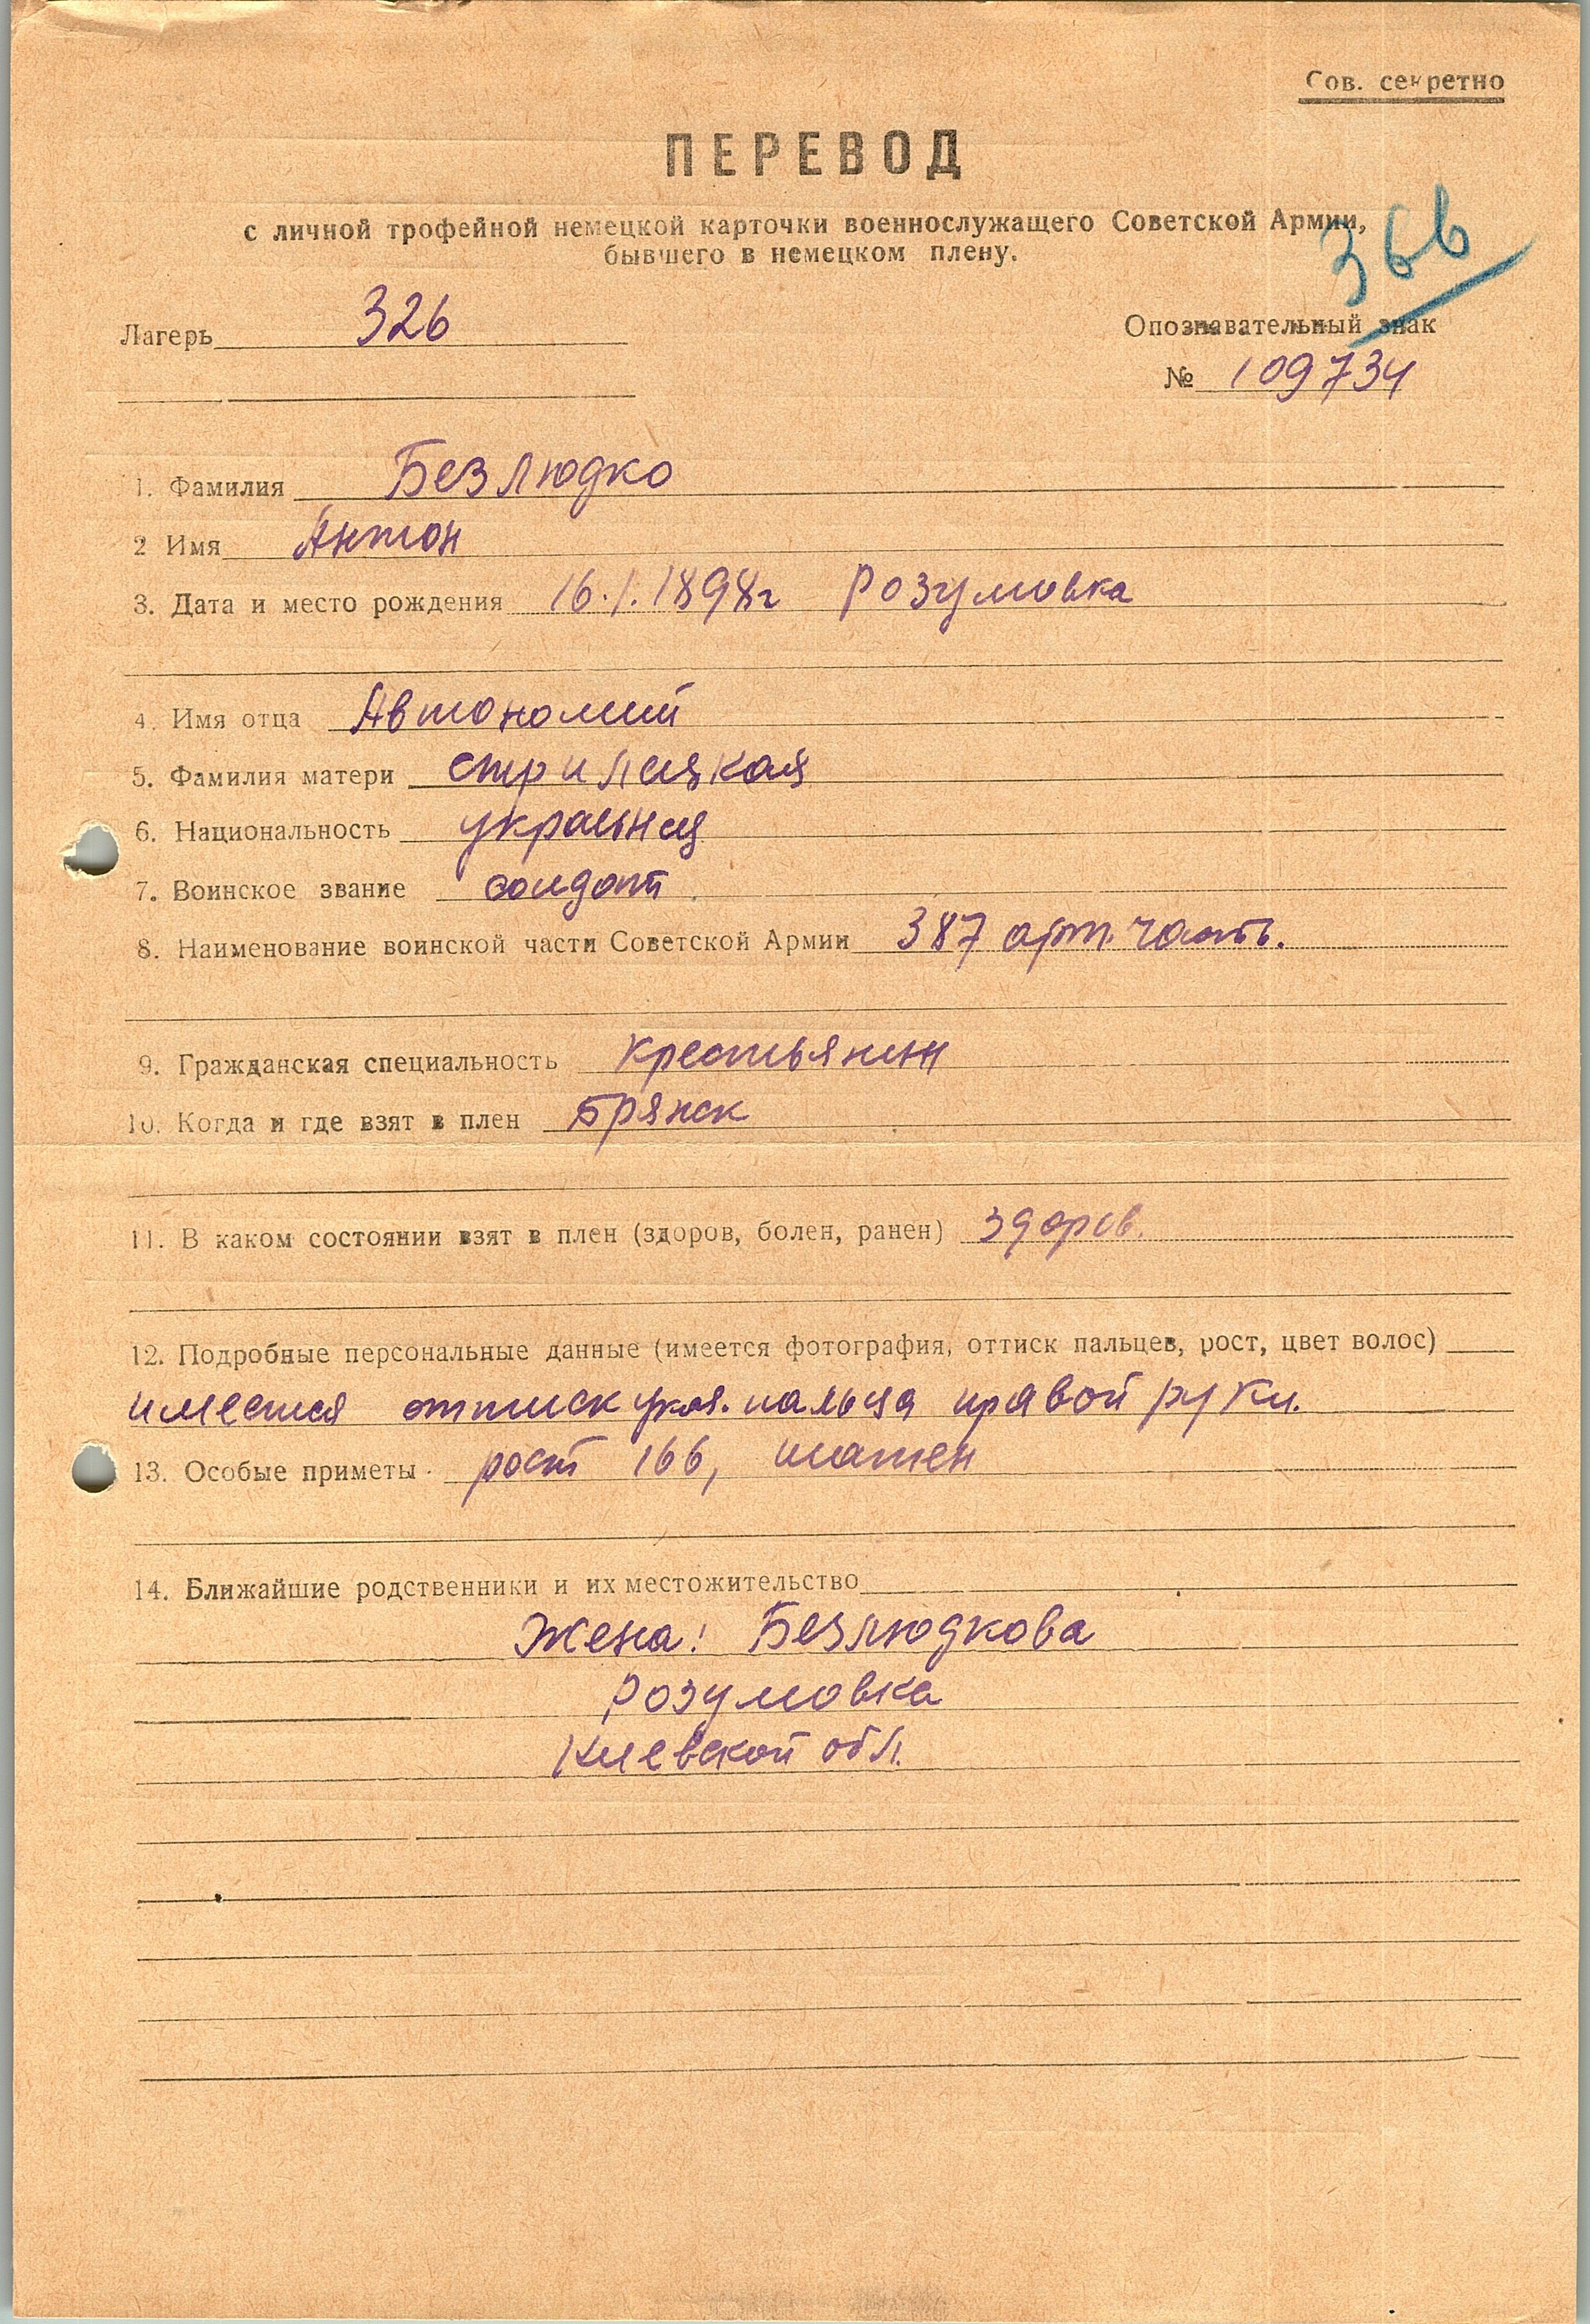 Сов. секретно
ПЕРЕВОД
с личной трофейной немецкой карточки военнослужащего Советской Армии,
бывшего в немецком плену.
36b
Лагерь 326
Опознавательный знак
№ 109734
1. Фамилия Безлюдко
2 Имя Антон
3. Дата и место рождения 16.1.1898г Розумовка
4. Имя отца Автономий
5. Фамилия матери Стрилецкая
6. Национальность украинец
7. Воинское звание солдат
8. Наименование воинской части Советской Армии 387 арт. часть.
9. Гражданская специальность крестьянин
10. Когда и где взят в плен Брянск
11. В каком состоянии взят в плен (здоров, болен, ранен) здоров.
12. Подробные персональные данные (имеется фотография, оттиск пальцев, рост, цвет волос)
имеется оттиск указ. пальца правой руки.
13. Особые приметы рост 166, шатен
14. Ближайшие родственники и их местожительство
Жена: Безлюдкова
Розумовка
Киевской обл.